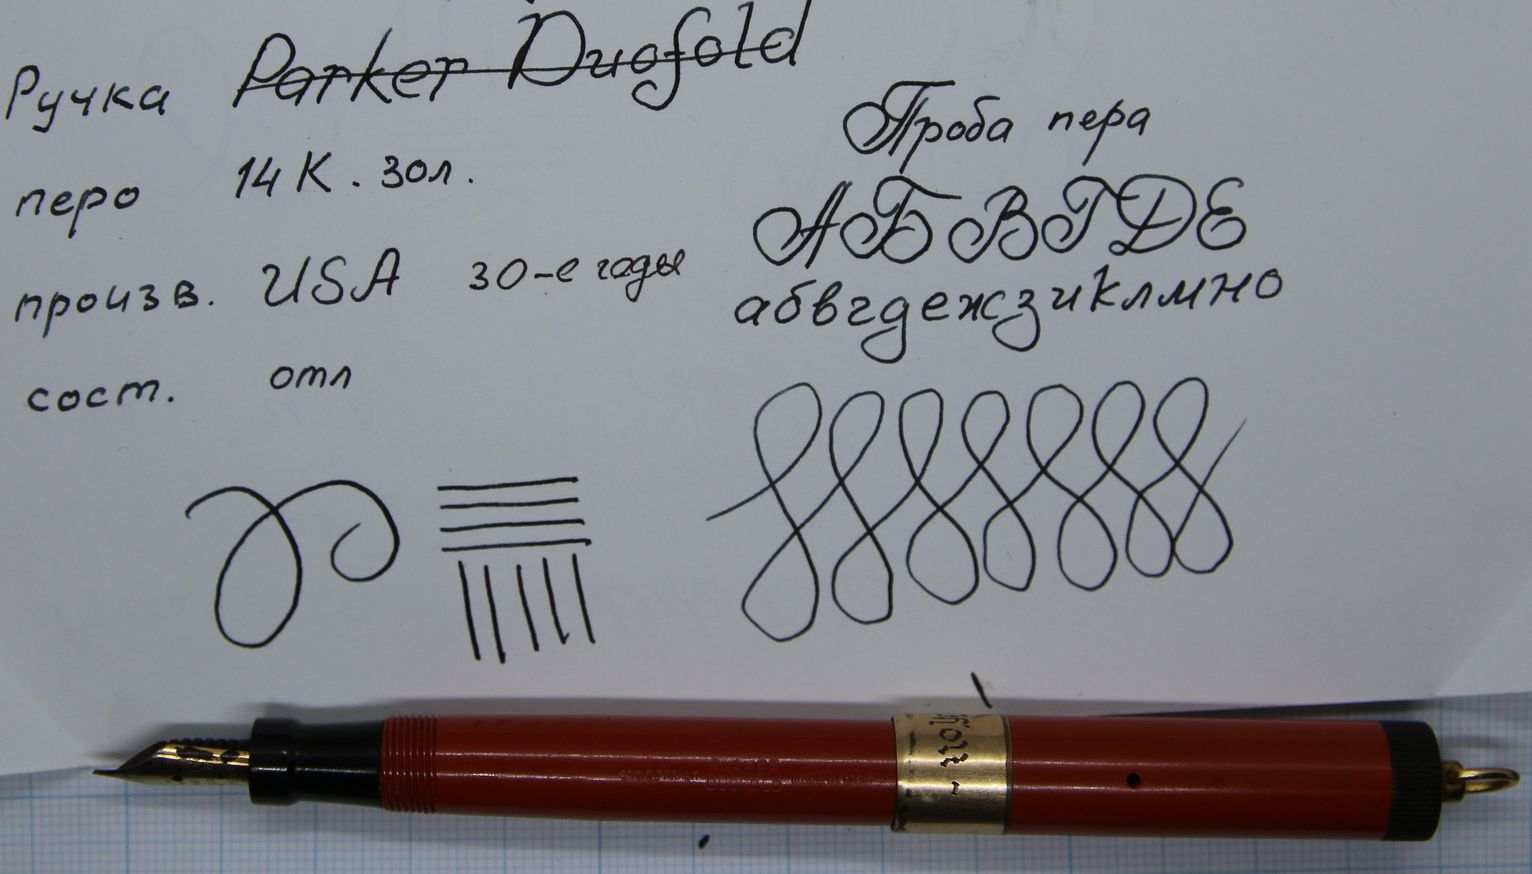 Ручка Parker Duofold
перо 14К. зол.
произв. USA 30-е годы
сост. отл
Проба пера
АБВГДЕ
абвгдежзиклмно